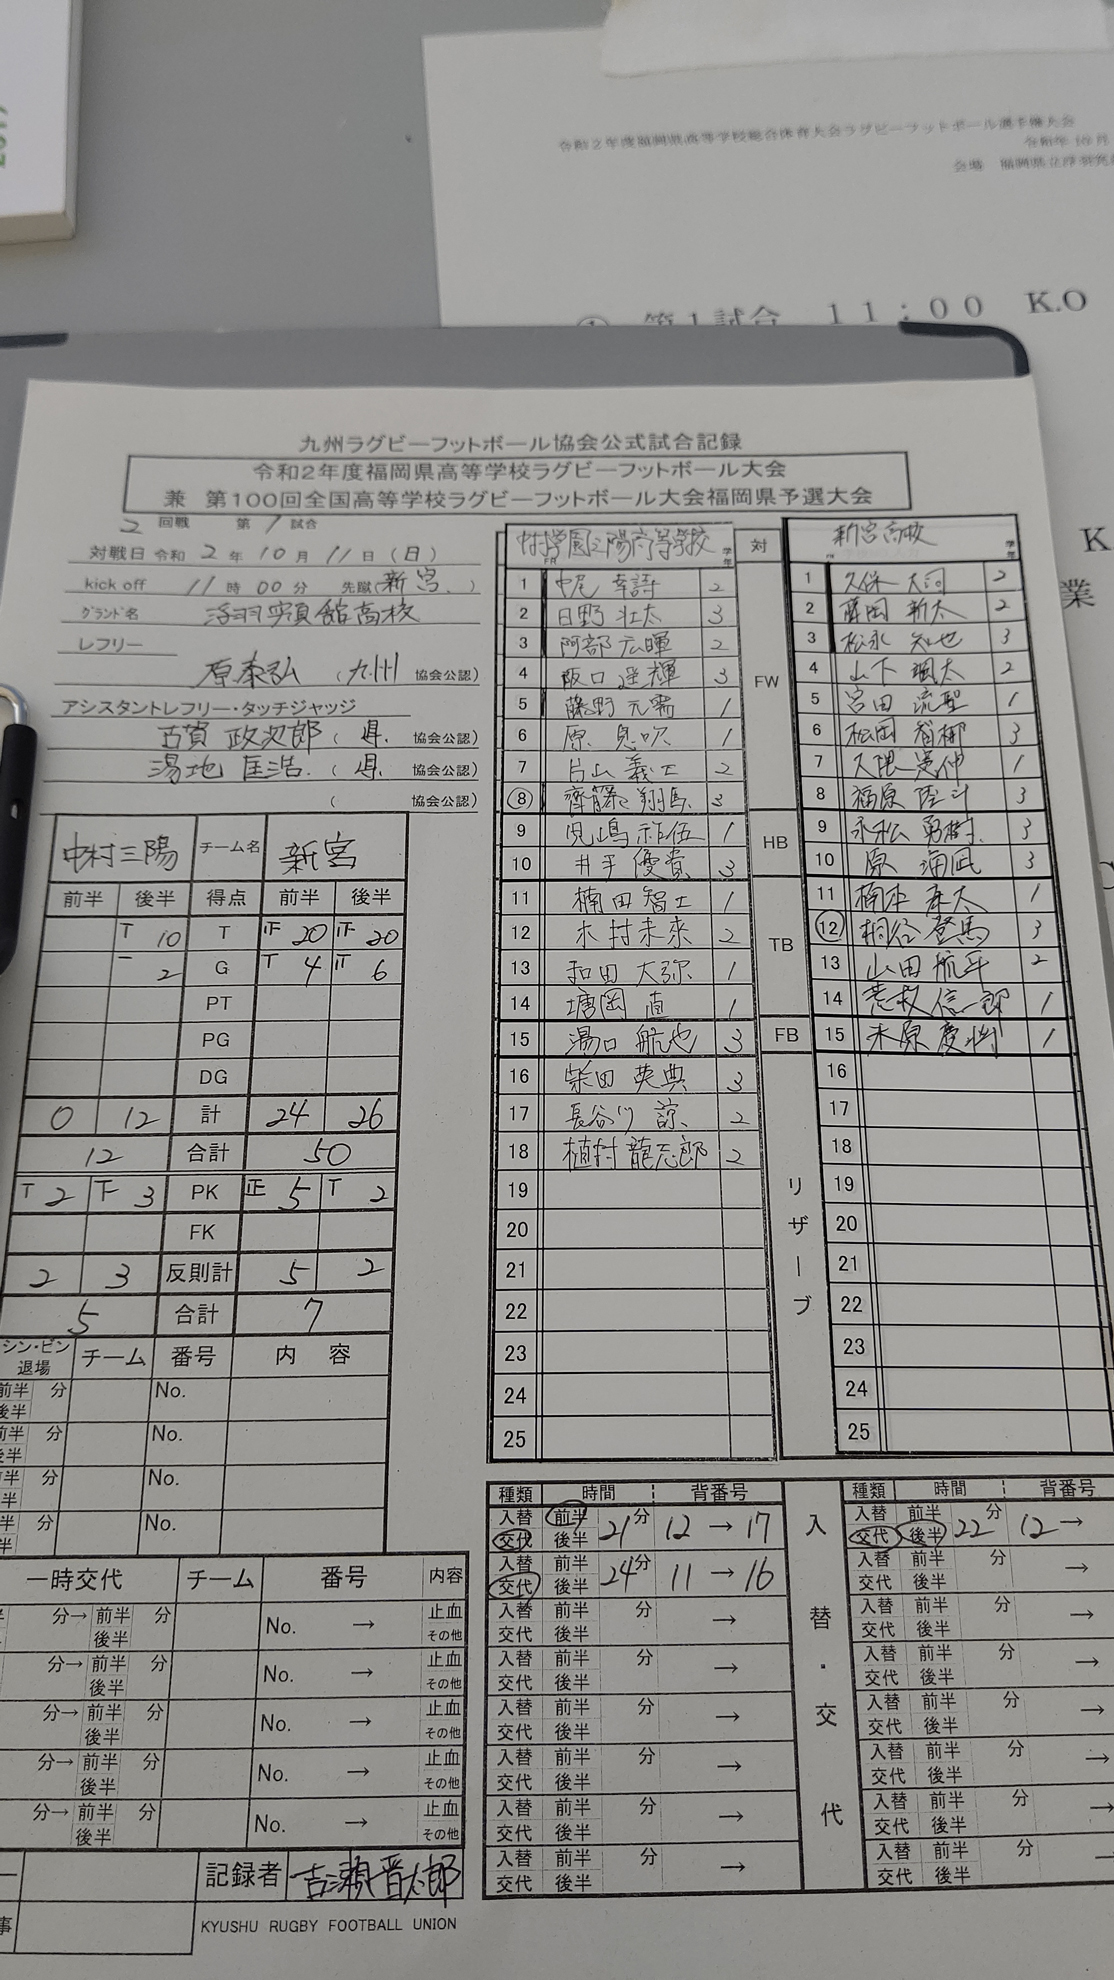 令和2年度福岡県高等学校総合体育大会ラグビーフットボール選手権大会
会場
① 第1試合 11:00 K.O
K
業
九州ラグビーフットボール協会公式試合記録
令和2年度福岡県高等学校ラグビーフットボール大会
兼 第100回全国高等学校ラグビーフットボール大会福岡県予選大会
2 回戦 第 1 試合
対戦日 令和 2 年 10 月 11 日 (日)
kick off 11 時 00 分 先蹴(新宮)
グランド名 浮羽究真館高校
レフリー
原泰弘 (九州 協会公認)
アシスタントレフリー・タッチジャッジ
古賀 政次郎 ( 県. 協会公認)
湯地 匡浩. ( 県. 協会公認)
( 協会公認)
中村三陽 チーム名 新宮
前半 後半 得点 前半 後半
T 10 T 正 20 正 20
一 2 G T 4 下 6
PT
PG
DG
0 12 計 24 26
12 合計 50
T 2 下 3 PK 正 5 T 2
FK
2 3 反則計 5 2
5 合計 7
シン・ビン 退場 チーム 番号 内容
前半 分 No.
後半
前半 分 No.
後半
分 No.
半
分 No.
半
一時交代 チーム 番号 内容
分→ 前半 分 No. → 止血
後半 その他
分→ 前半 分 No. → 止血
後半 その他
分→ 前半 分 No. → 止血
後半 その他
分→ 前半 分 No. → 止血
後半 その他
分→ 前半 分 No. → 止血
後半 その他
記録者 古瀬晋太郎
事
KYUSHU RUGBY FOOTBALL UNION
中村学園三陽高等学校 学年 対 新宮高校 学年
FR
1 中尾 幸語 2
2 日野 壮太 3
3 阿部 広暉 2
4 阪口 遥輝 3
5 藤野 元 1
6 原 息吹 1
7 片山 義士 2
⑧ 齊藤 翔馬 3
9 児嶋 祚伍 1
10 井手 優貴 3
11 楠田 智士 1
12 木村未来 2
13 和田 大弥 1
14 塘岡 直 1
15 湯口 航也 3
16 柴田 英典 3
17 長谷川 諒 2
18 植村 龍志郎 2
19
20
21
22
23
24
25
FW
HB
TB
FB
リザーブ
1 久保 大河 2
2 藤岡 新太 2
3 松永 知也 3
4 山下 颯太 2
5 宮田 流聖 1
6 松岡 3
7 久隈 1
8 福原 陸斗 3
9 永松 勇樹 3
10 原 3
11 楠本 1
⑫ 桐谷 登馬 3
13 山田 航平 2
14 荒牧 信一郎 1
15 木原 慶将 1
16
17
18
19
20
21
22
23
24
25
種類 時間 背番号
入替 前半 21分 12 → 17
交代 後半
入替 前半 24分 11 → 16
交代 後半
入替 前半 分 →
交代 後半
入替 前半 分 →
交代 後半
入替 前半 分 →
交代 後半
入替 前半 分 →
交代 後半
入替 前半 分 →
交代 後半
入替 前半 分 →
交代 後半
入替・交代
種類 時間 背番号
入替 前半 22分 12 →
交代 後半
入替 前半 分 →
交代 後半
入替 前半 分 →
交代 後半
入替 前半 分 →
交代 後半
入替 前半 分 →
交代 後半
入替 前半 分 →
交代 後半
入替 前半 分 →
交代 後半
入替 前半 分 →
交代 後半